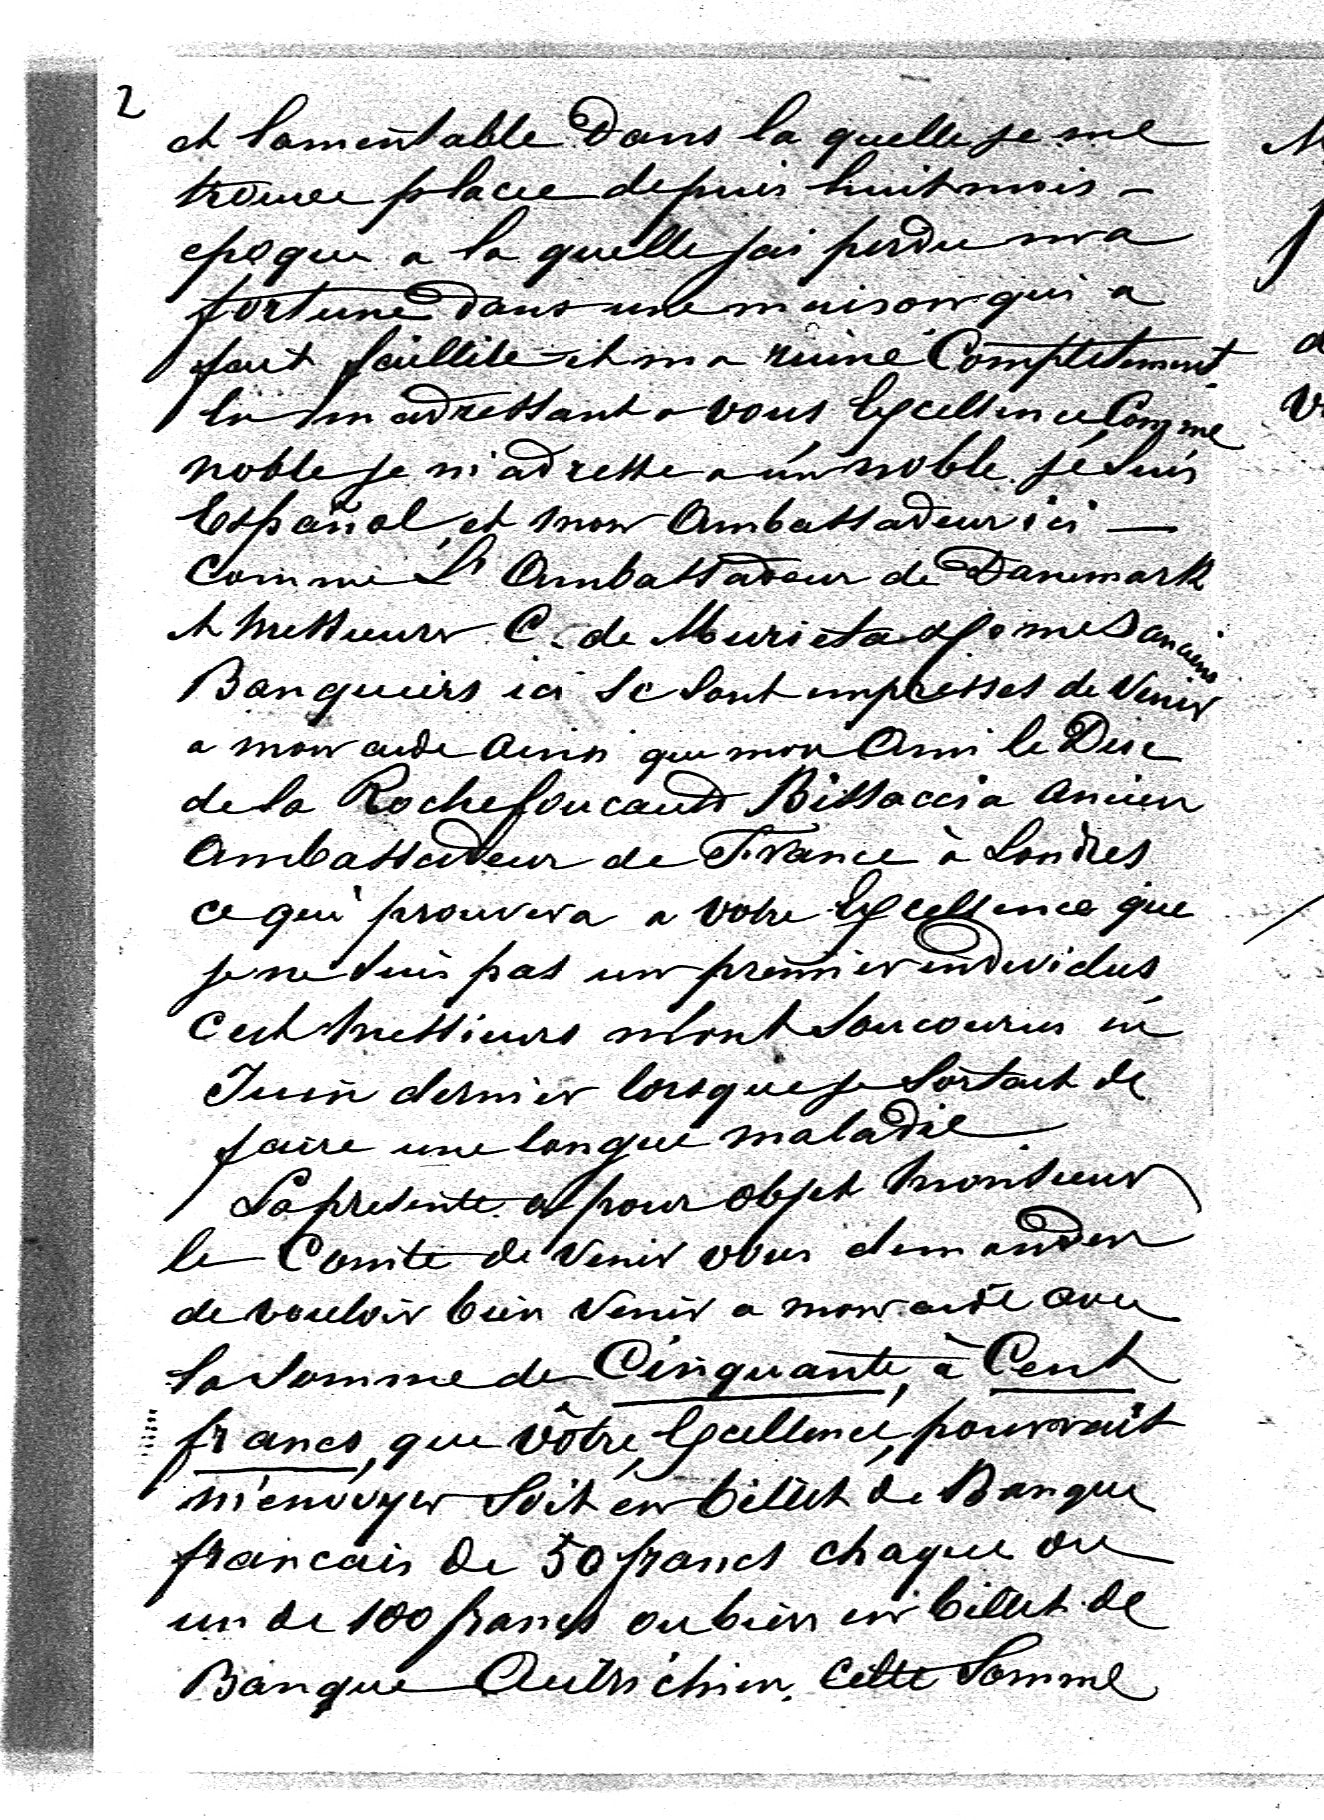 2
et lamentable Dans la quelle je me
trouve placée depuis huit mois –
epoque a la quelle jai perdu ma
fortune dans une maison qui a
fait faillite et m a ruiné Completement.
En m adressant a vous Excellence, Comme
noble je m'adresse a un noble. je suis
Español, et mon Ambassadeur ici —
comme L' Ambassadeur de Danemark
et Messieurs C. de Murieta & Gomes anciens
Banquiers ici se sont empresses de Venir
a mon aide ainsi que mon Ami le Duc
de la Rochefoucault Bissaccia ancien
Ambassadeur de France à Londres
ce qui prouvera a votre Excellence que
je ne suis pas un premier individus
Cest Messieurs m'ont Soucourus en
Juin dernier lorsque je Sortait de
faire une longue maladie.
La presente a pour objet Monsieur
le Comte de Venir vous demander
de vouloir bien Venir a mon aide avec
la somme de Cinquante, à Cent
francs, que vôtre Excellence, pourrait
m'envoyer Soit en billet de Banque
francais de 50 francs chaque ou
un de 100 francs ou bien en billet de
Banque Autrichien. Cette Somme